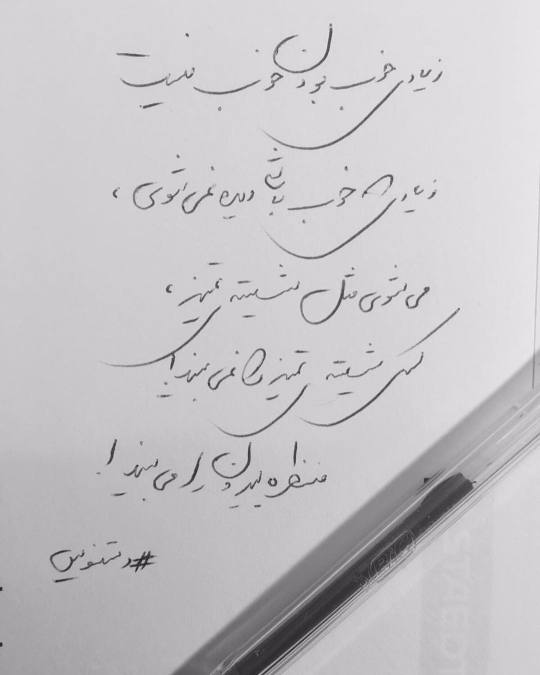 زیادی خوب بودن خوب نیست
زیادی که خوب باشی دیده نمی شوی،
می شوی مثل شیشه ی تمیز،
کسی شیشه ی تمیز را نمی بیند!
منظره بیرون را می بیند!
#دستنویس